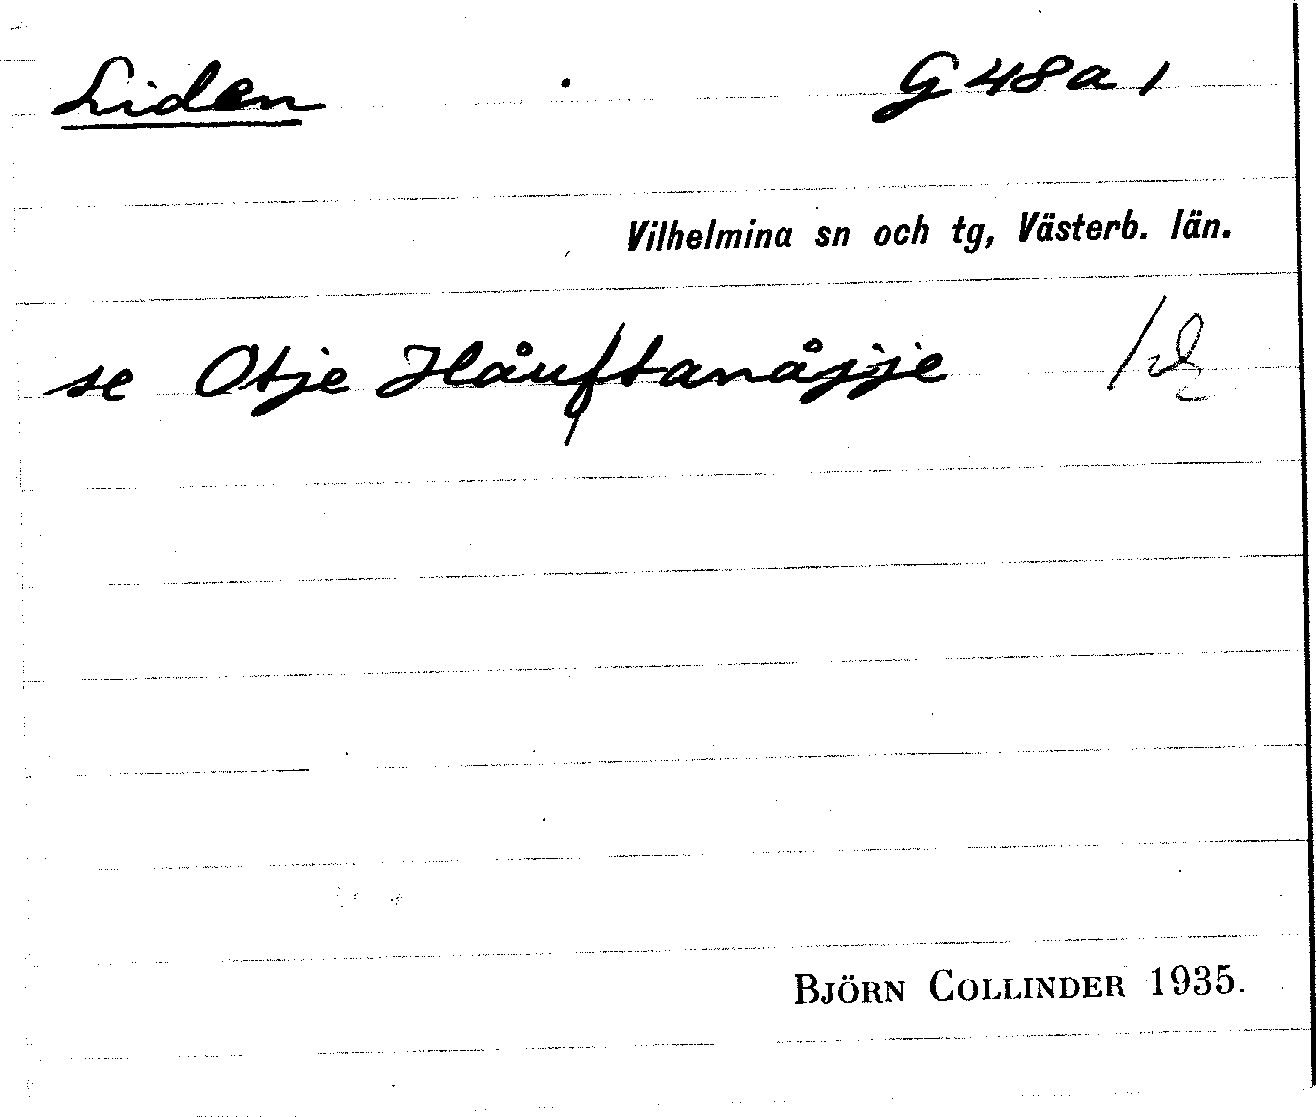 Liden G48a1
Vilhelmina sn och tg, Västerb. län.
se Otje Håuftanåjje
BJÖRN COLLINDER 1935.